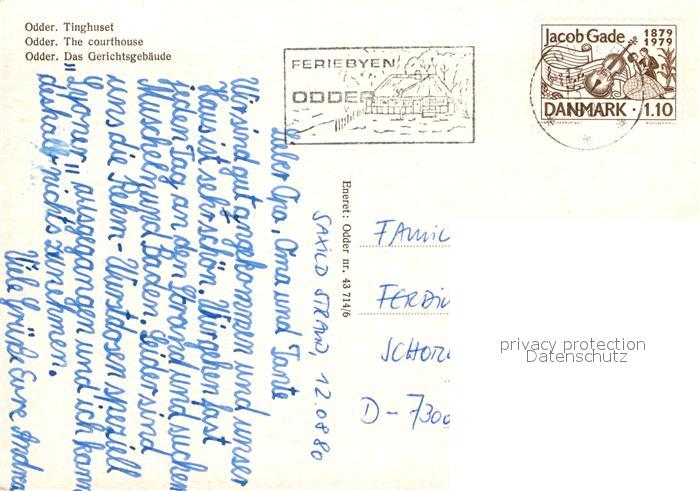 Odder. Tinghuset
Odder. The courthouse
Odder. Das Gerichtsgebäude
FERIEBYEN
ODDER
Jacob Gade 1879
1979
DANMARK · 1.10
Lieber Opa, Oma und Tante
Wir sind gut angekommen und unser
Haus ist sehr schön. Wir gehen fast
jeden Tag an den Strand und suchen
Muscheln und Baden. Leider sind
uns die Rehm-Wurstdosen speziell
"Lyoner" ausgegangen und ich kann
deshalb nichts zunehmen.
Viele grüße Eure Andrea
SAXILD STRAND, 12.08.80
Eneret: Odder nr. 43 714/6
FAMIL
FERDIN
SCHOR
D-7300
privacy protection
Datenschutz